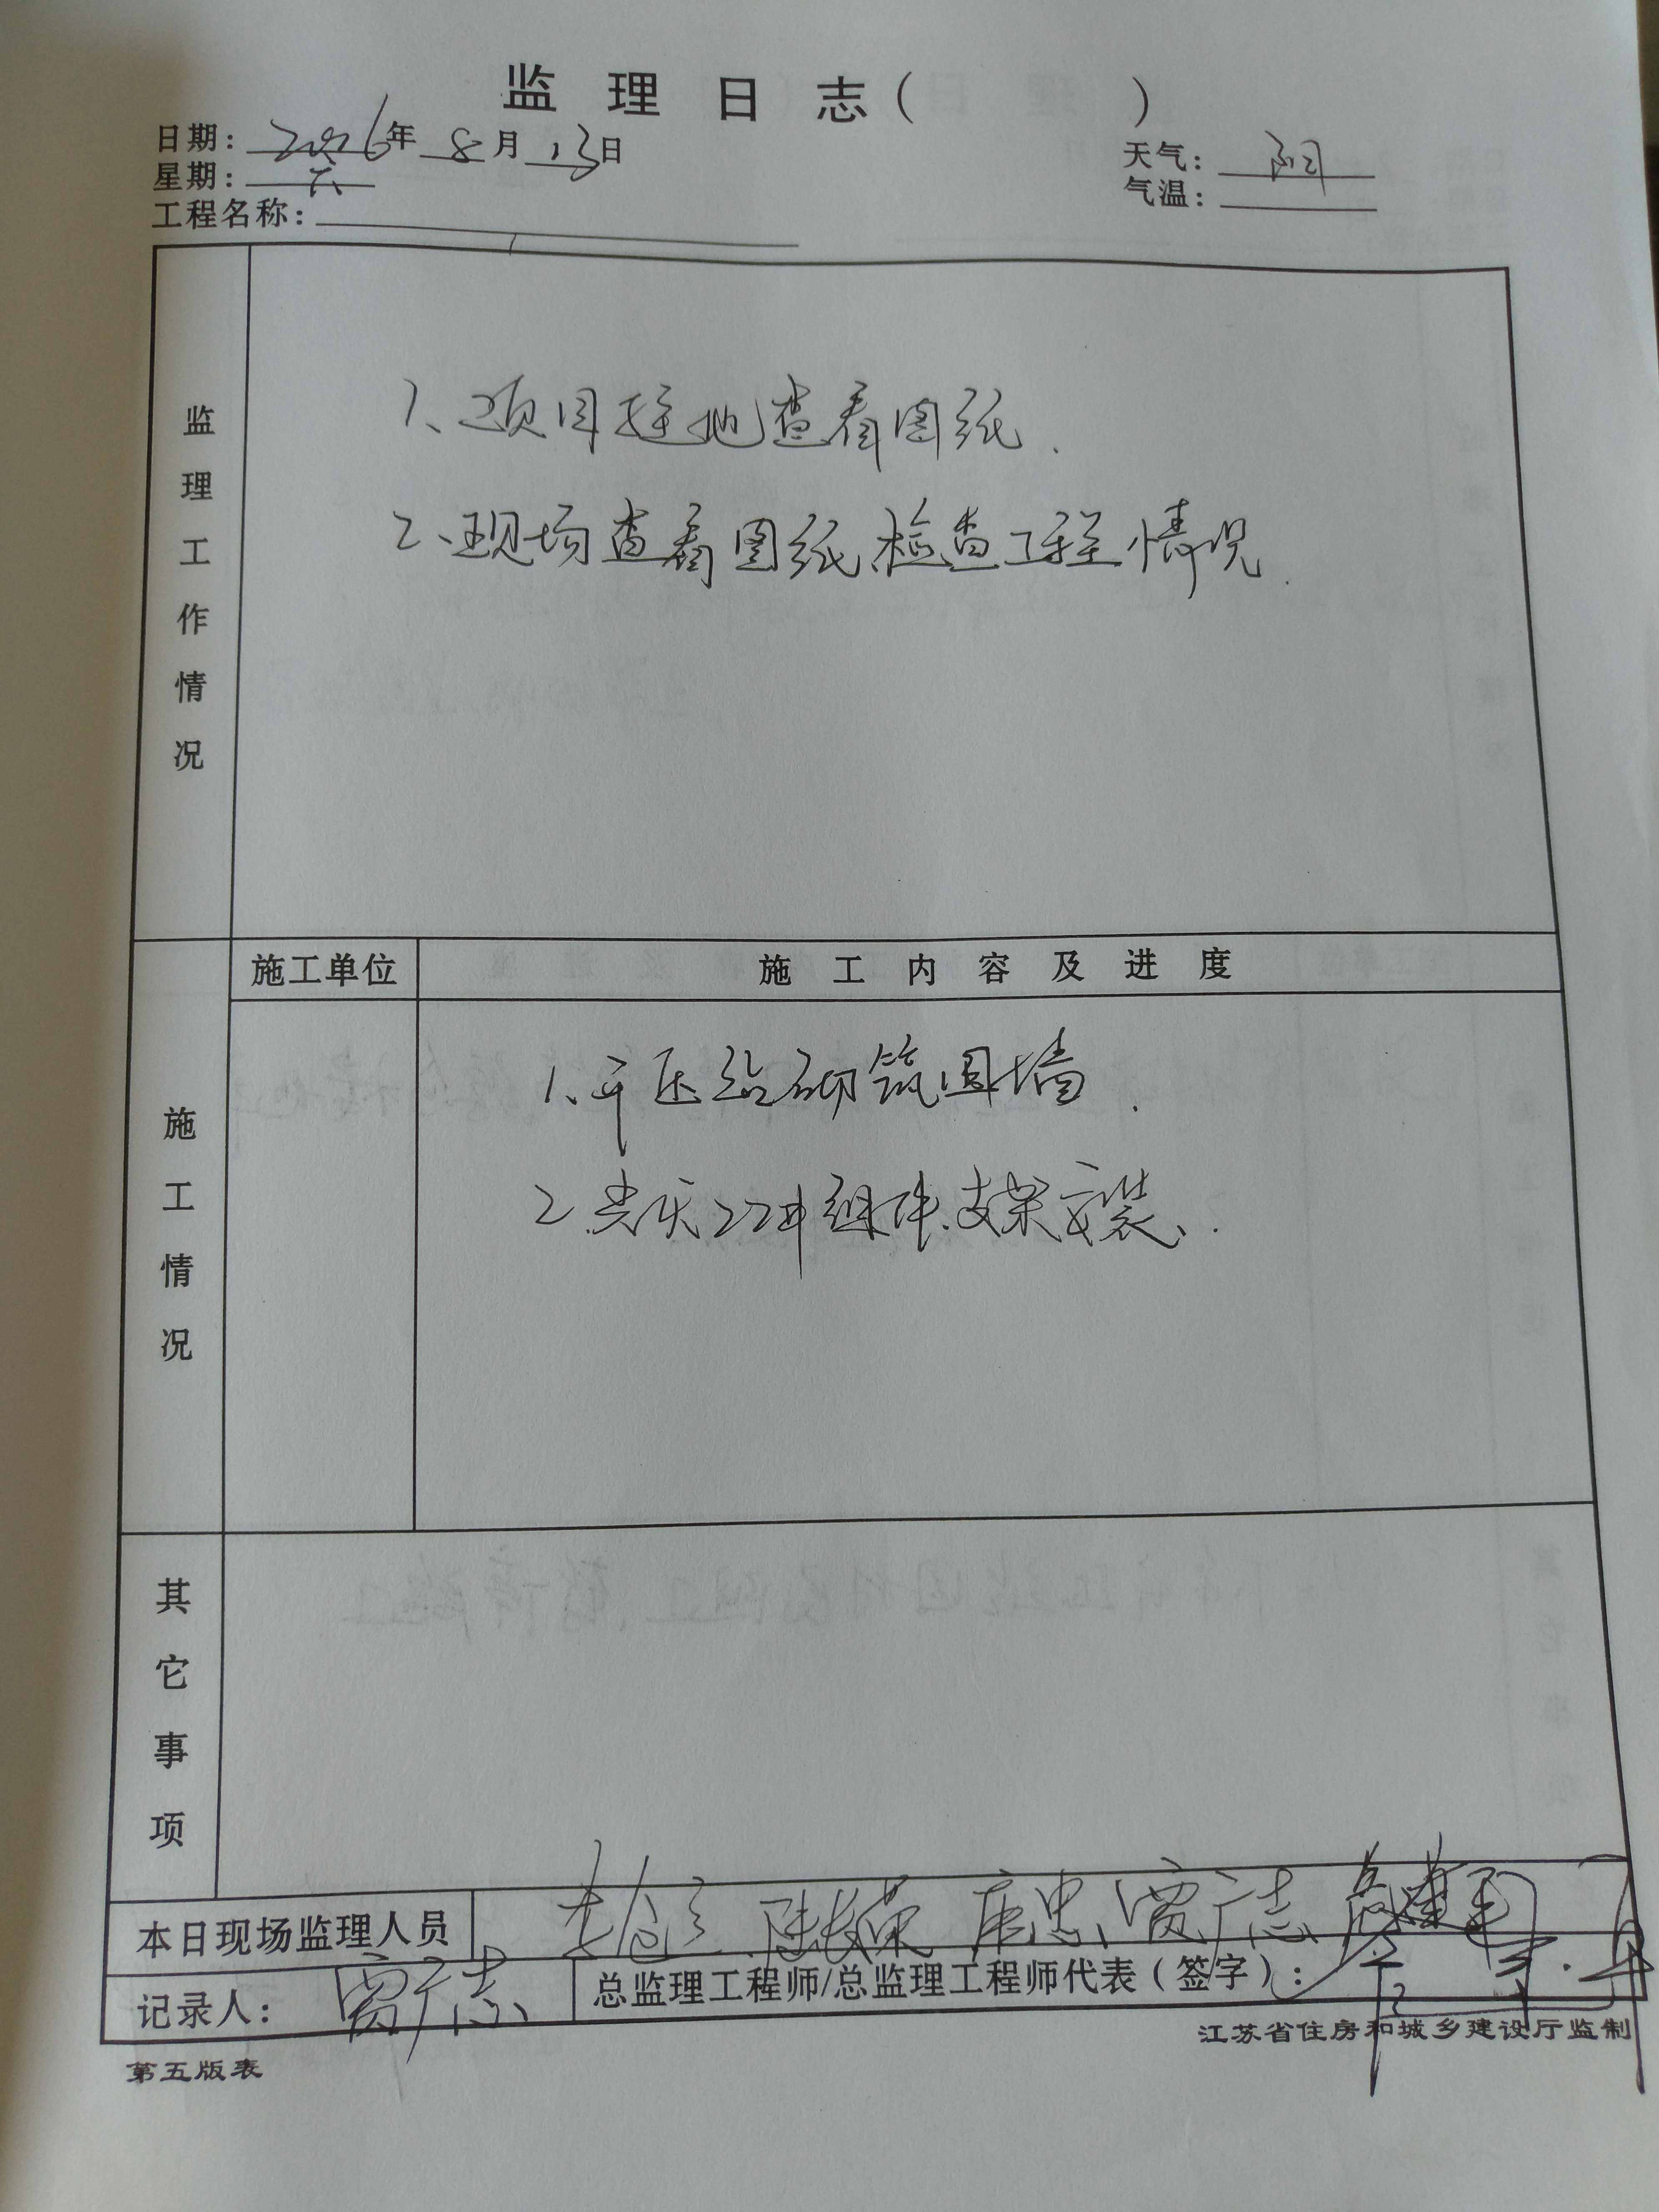 监理日志( )
日期: 2016年 8月 13日
天气: 阴
星期: 六
气温:
工程名称:
监理工作情况
1、项目驻地查看图纸.
2、现场查看图纸、检查工程情况.
施工单位 施工内容及进度
施工情况
1、开压站砌筑围墙.
2、组件、支架安装、.
其它事项
本日现场监理人员 贾广志
记录人: 贾广志 总监理工程师/总监理工程师代表(签字):
江苏省住房和城乡建设厅监制
第五版表